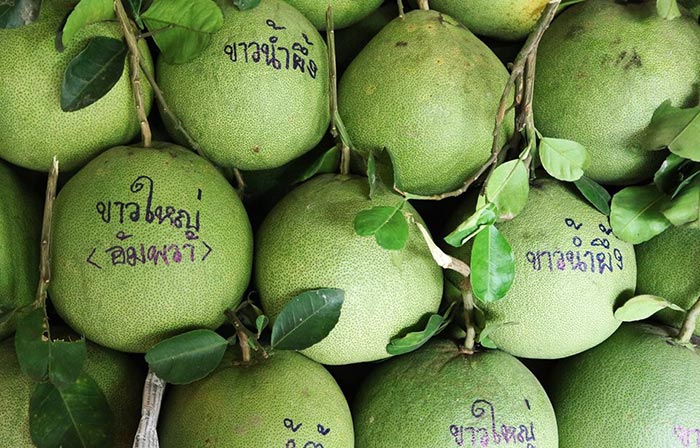 ขาวน้ำผึ้ง
ขาวใหญ่
<อัมพวา>
ขาวน้ำผึ้ง
ขาวใหญ่